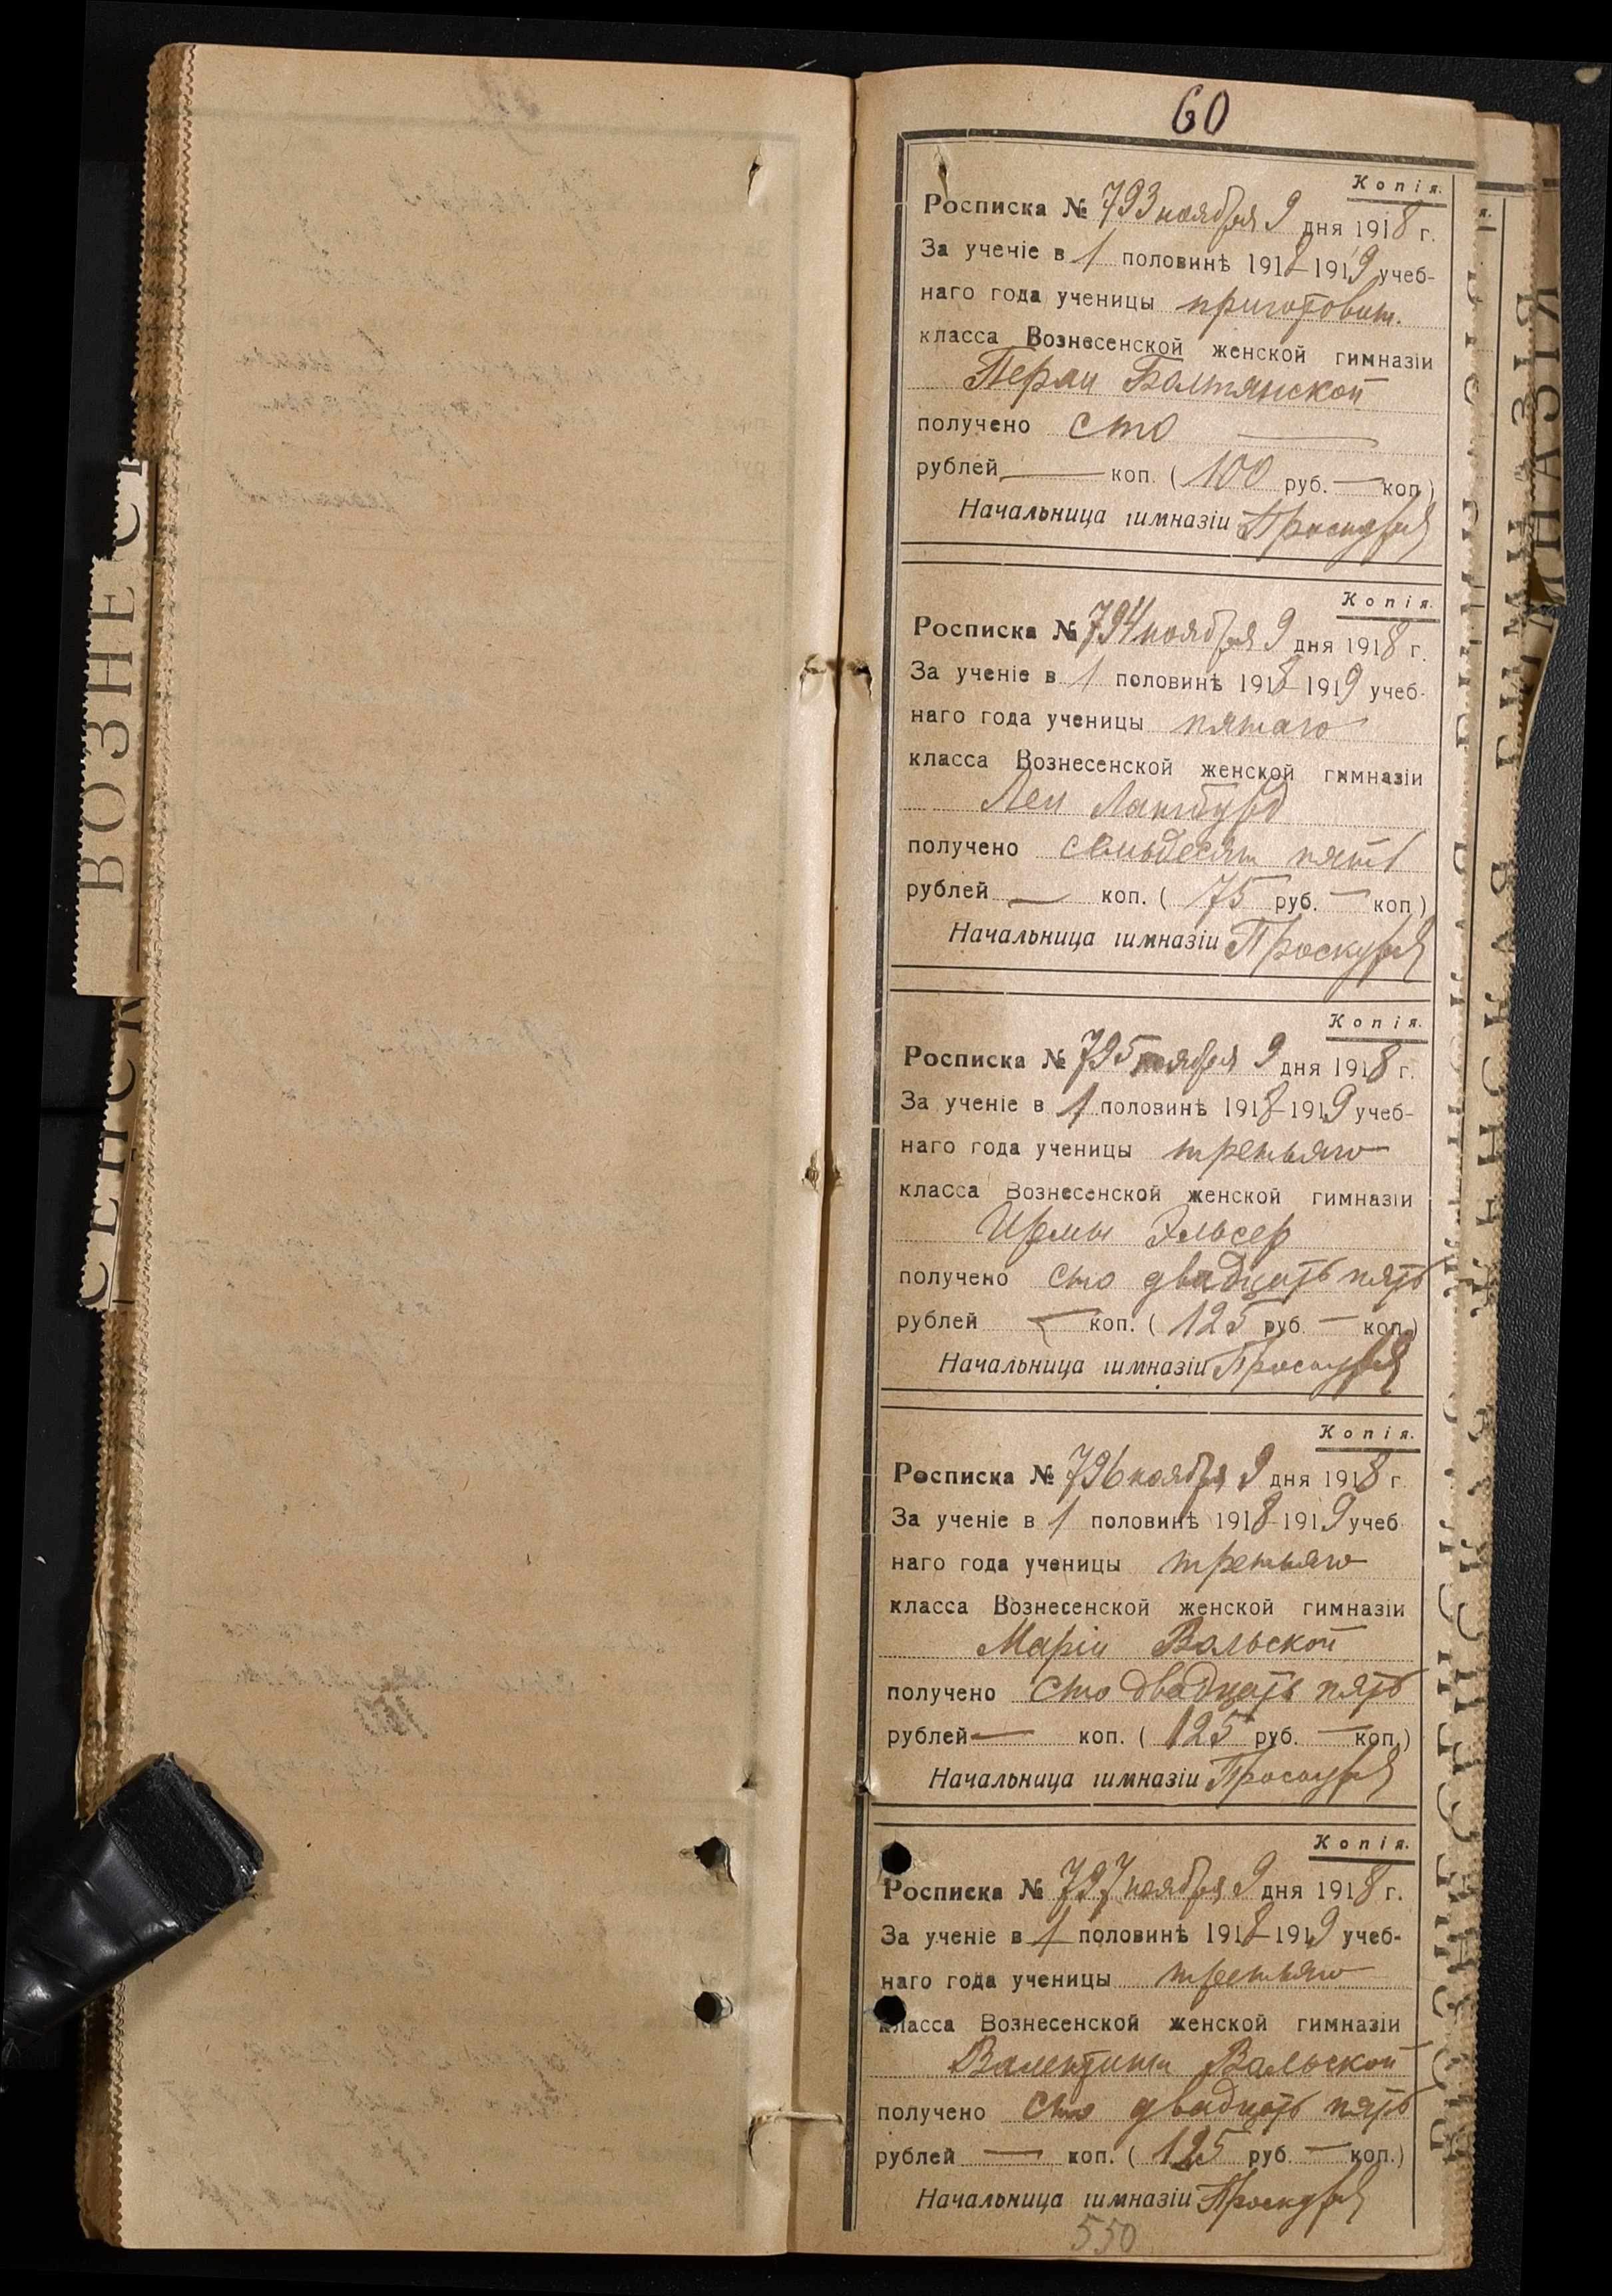 60
Копія.
Росписка № 793 ноября 9 дня 1918 г.
За ученіе в 1 половинѣ 1918–1919 учеб-
наго года ученицы приготовит.
класса Вознесенской женской гимназіи
Перли Балтянской
получено сто —
рублей — коп. (100 руб. — коп)
Начальница гимназіи Проскуря
Копія.
Росписка № 794 ноября 9 дня 1918 г.
За ученіе в 1 половинѣ 1918–1919 учеб-
наго года ученицы пятаго
класса Вознесенской женской гимназіи
Леи
получено семьдесят пять
рублей — коп. (75 руб. — коп)
Начальница гимназіи Проскуря
Копія.
Росписка № 795 ноября 9 дня 1918 г.
За ученіе в 1 половинѣ 1918–1919 учеб-
наго года ученицы третьяго
класса Вознесенской женской гимназіи
Ирмы Эльсер
получено сто двадцать пять
рублей — коп. (125 руб. — коп.)
Начальница гимназіи Проскуря
Копія.
Росписка № 796 ноября 9 дня 1918 г.
За ученіе в 1 половинѣ 1918–1919 учеб
наго года ученицы третьяго
класса Вознесенской женской гимназіи
Маріи Вольской
получено сто двадцать пять
рублей — коп. (125 руб. — коп.)
Начальница гимназіи Проскуря
Копія.
Росписка № 797 ноября 9 дня 1918 г.
За ученіе в 1 половинѣ 1918–1919 учеб-
наго года ученицы третьяго
класса Вознесенской женской гимназіи
Валентины Вольской
получено сто двадцать пять
рублей — коп. (125 руб. — коп.)
Начальница гимназіи Проскуря
550
ВОЗНЕС